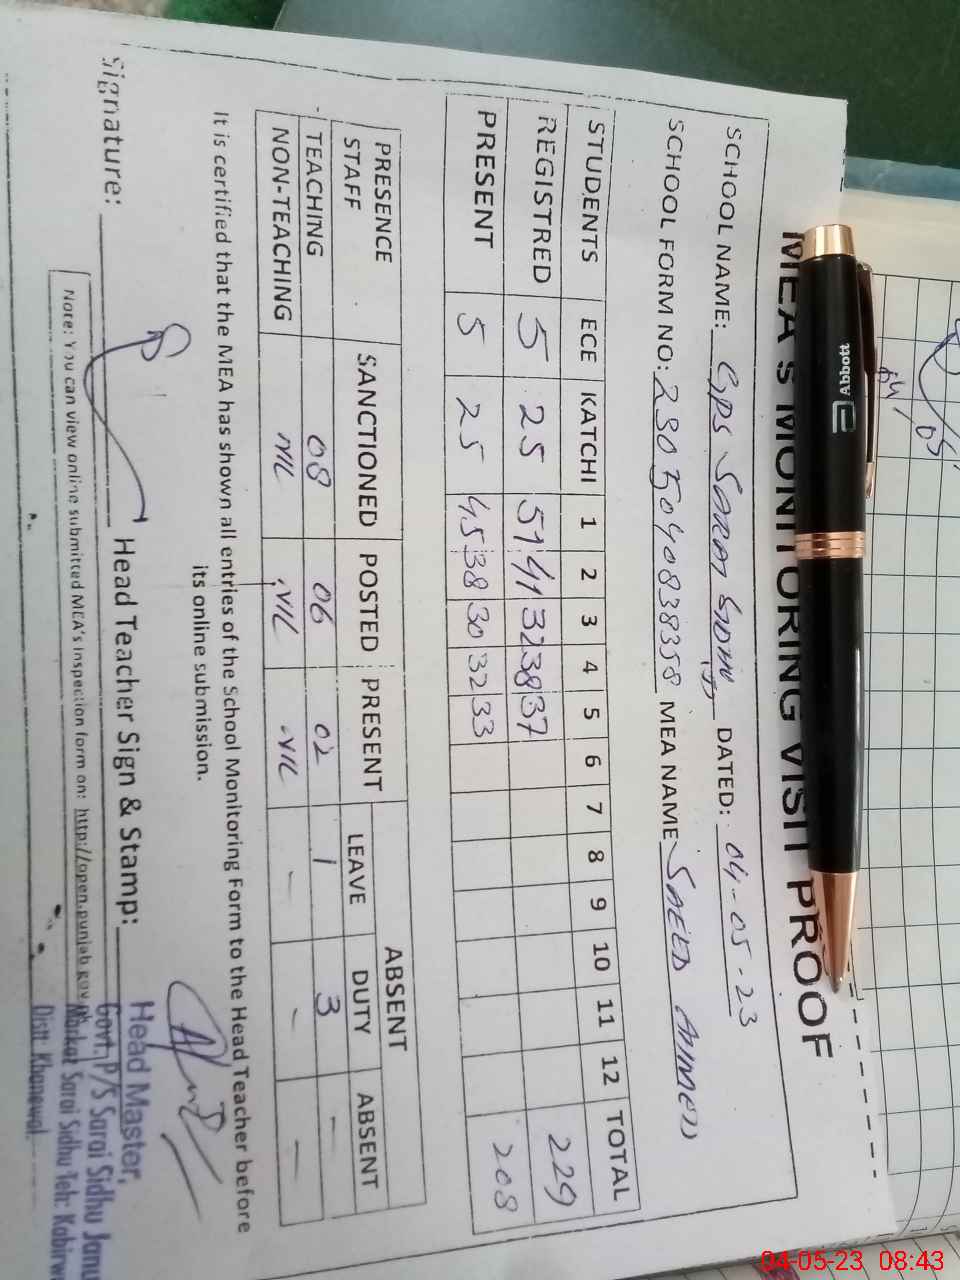 MEA'S MONITORING VISIT PROOF
SCHOOL NAME: GPS SARAI SIDHU (J) DATED: 04-05-23
SCHOOL FORM NO: MEA NAME SAEED AHMED
STUDENTS ECE KATCHI 1 2 3 4 5 6 7 8 9 10 11 12 TOTAL
REGISTRED 5 25 51 41 32 38 37 229
PRESENT 5 25 45 38 30 32 33 208
PRESENCE STAFF SANCTIONED POSTED PRESENT ABSENT
LEAVE DUTY ABSENT
TEACHING 08 06 02 1 3 —
NON-TEACHING NIL NIL NIL — — —
It is certified that the MEA has shown all entries of the School Monitoring Form to the Head Teacher before
its online submission.
Signature: Head Teacher Sign & Stamp:
Head Master,
Govt. P/S Sarai Sidhu Janu
Markat Sarai Sidhu Teh: Kabirw
Distt: Khanewal.
Note: You can view online submitted MEA's Inspection form on: http://open.punjab.gov.
Abbott
04-05-23 08:43